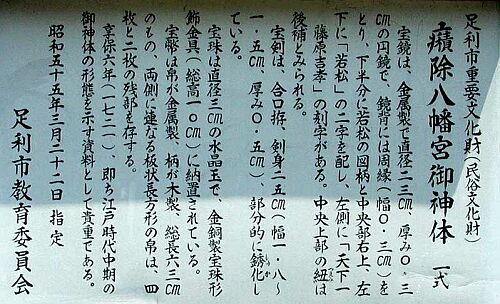 足利市重要文化財(民俗文化財)
癪除八幡宮御神体 一式
宝鏡は、金属製で直径二三㎝、厚み〇・三
㎝の円鏡で、鏡背には周縁(幅一〇・三㎝)を
とり、下半分に若松の図柄と中央部右上、左
下に「若松」の二字を配し、左側に「天下一
藤原吉孝」の刻字がある。中央上部の紐は
後補とみられる。
宝剣は、合口拵、剣身二五㎝(幅一・八〜
一・五㎝、厚み〇・五㎝)、部分的に銹化し
ている。
宝珠は直径三㎝の水晶玉で、金銅製宝珠形
飾金具(総高一〇㎝)に納置されている。
宝幣は帛が金属製、柄が木製、総長六三㎝
のもの、両側に連なる板状長方形の帛は、四
枚と二枚の残部を存する。
享保六年(一七二一)、即ち江戸時代中期の
御神体の形態を示す資料として貴重である。
昭和五十五年三月二十二日 指定
足利市教育委員会